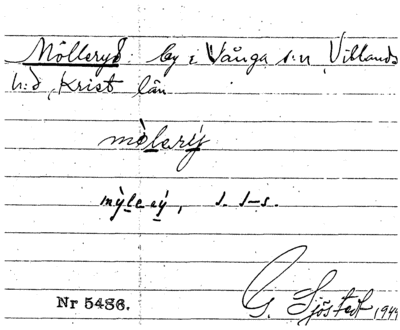 Mölleryd: by i Vånga s:n Villands
h:d, Krist län
mòlerý
mỳlerý, s. s-s.
Nr 5486. G. Sjöstedt 1944